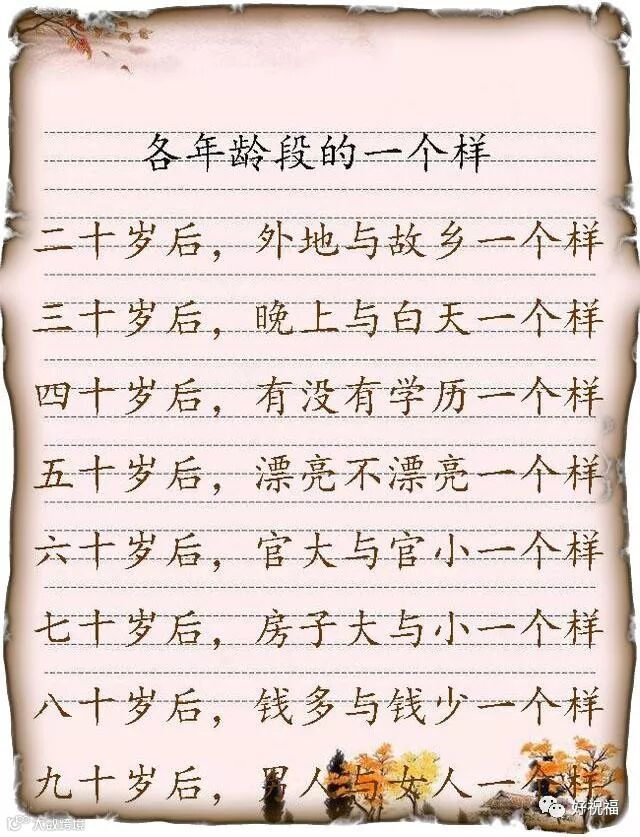 各年龄段的一个样
二十岁后，外地与故乡一个样
三十岁后，晚上与白天一个样
四十岁后，有没有学历一个样
五十岁后，漂亮不漂亮一个样
六十岁后，官大与官小一个样
七十岁后，房子大与小一个样
八十岁后，钱多与钱少一个样
九十岁后，男人与女人一个样
好祝福